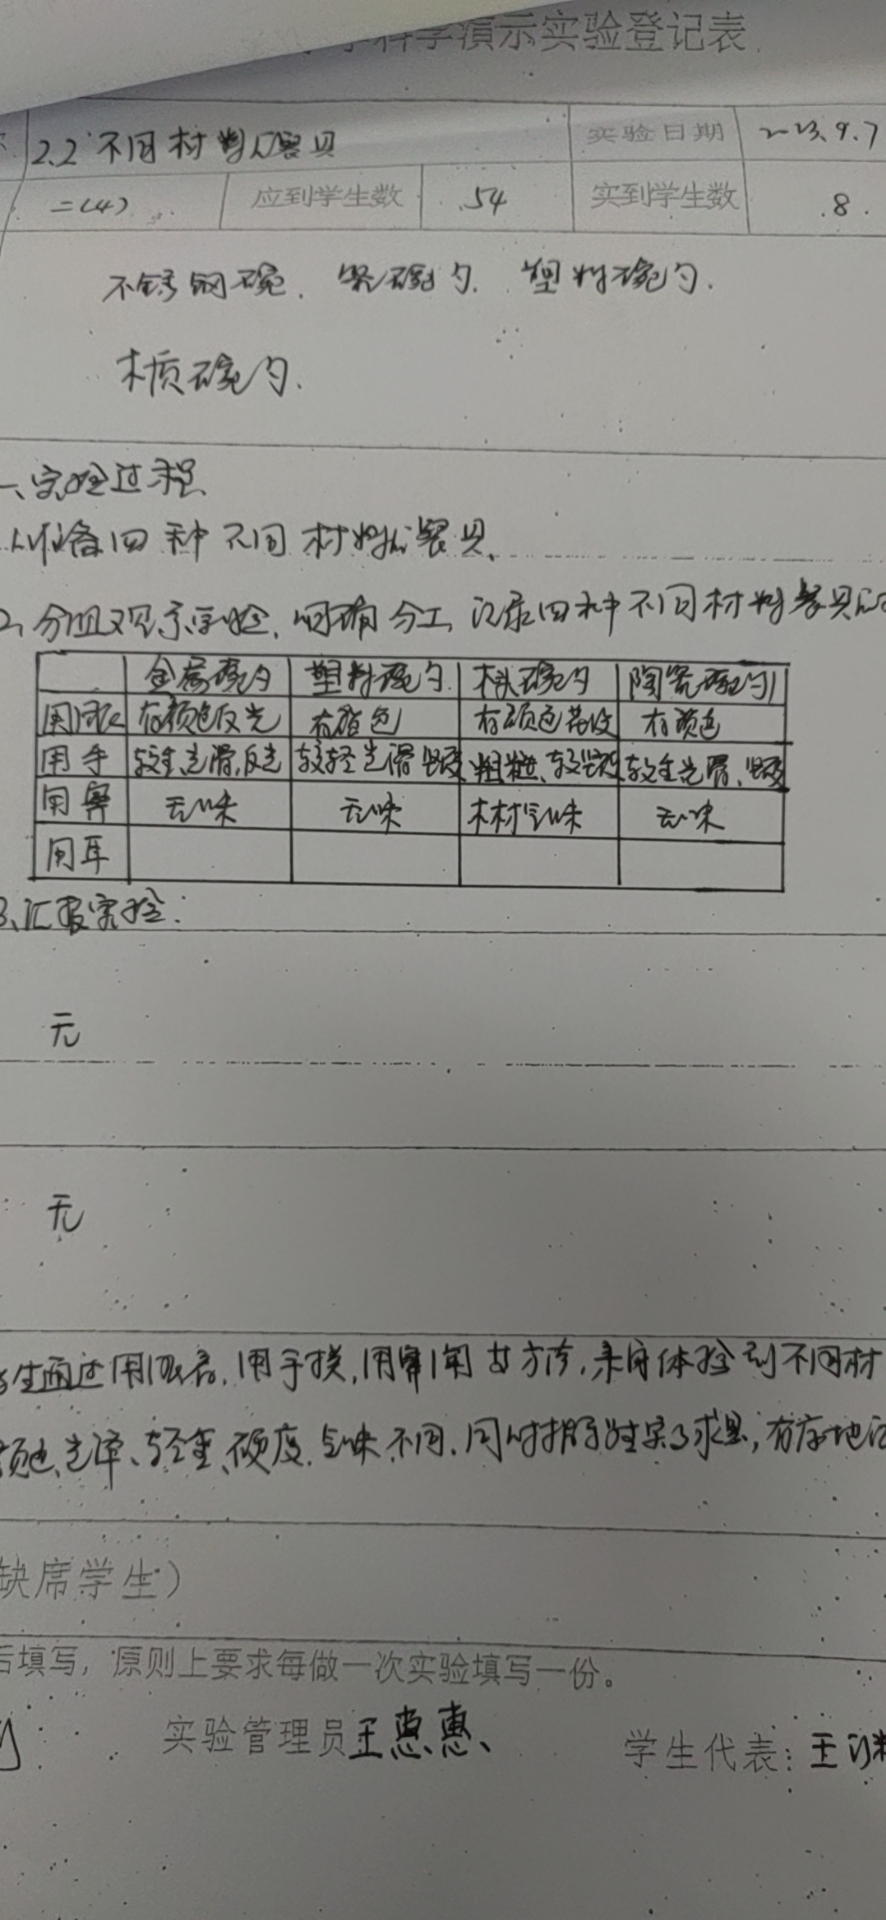 学科学演示实验登记表
2.2 不同材料的餐具 实验日期 2023.9.7
二(4) 应到学生数 54 实到学生数 8.
不锈钢碗. 瓷碗勺. 塑料碗勺.
木质碗勺.
一、实验过程
1.准备四种不同材料的餐具.
2、分组观察实验, 明确分工, 记录四种不同材料餐具的
金属碗勺 塑料碗勺 木头碗勺 陶瓷碗勺
用眼 有颜色反光 有颜色 有颜色花纹 有颜色
用手 较重,光滑,反光 较轻光滑 坚硬 粗糙、较坚硬 较重光滑、坚硬
用鼻 无味 无味 木材气味 无味
用耳
3、汇报实验:
无
无
学生通过用眼看, 用手摸, 用鼻闻的方法, 亲身体验到不同材
颜色、光泽、轻重、硬度、气味不同, 同时指导学生实事求是, 有序地记
缺席学生）
后填写，原则上要求每做一次实验填写一份。
实验管理员 王惠惠、 学生代表: 王